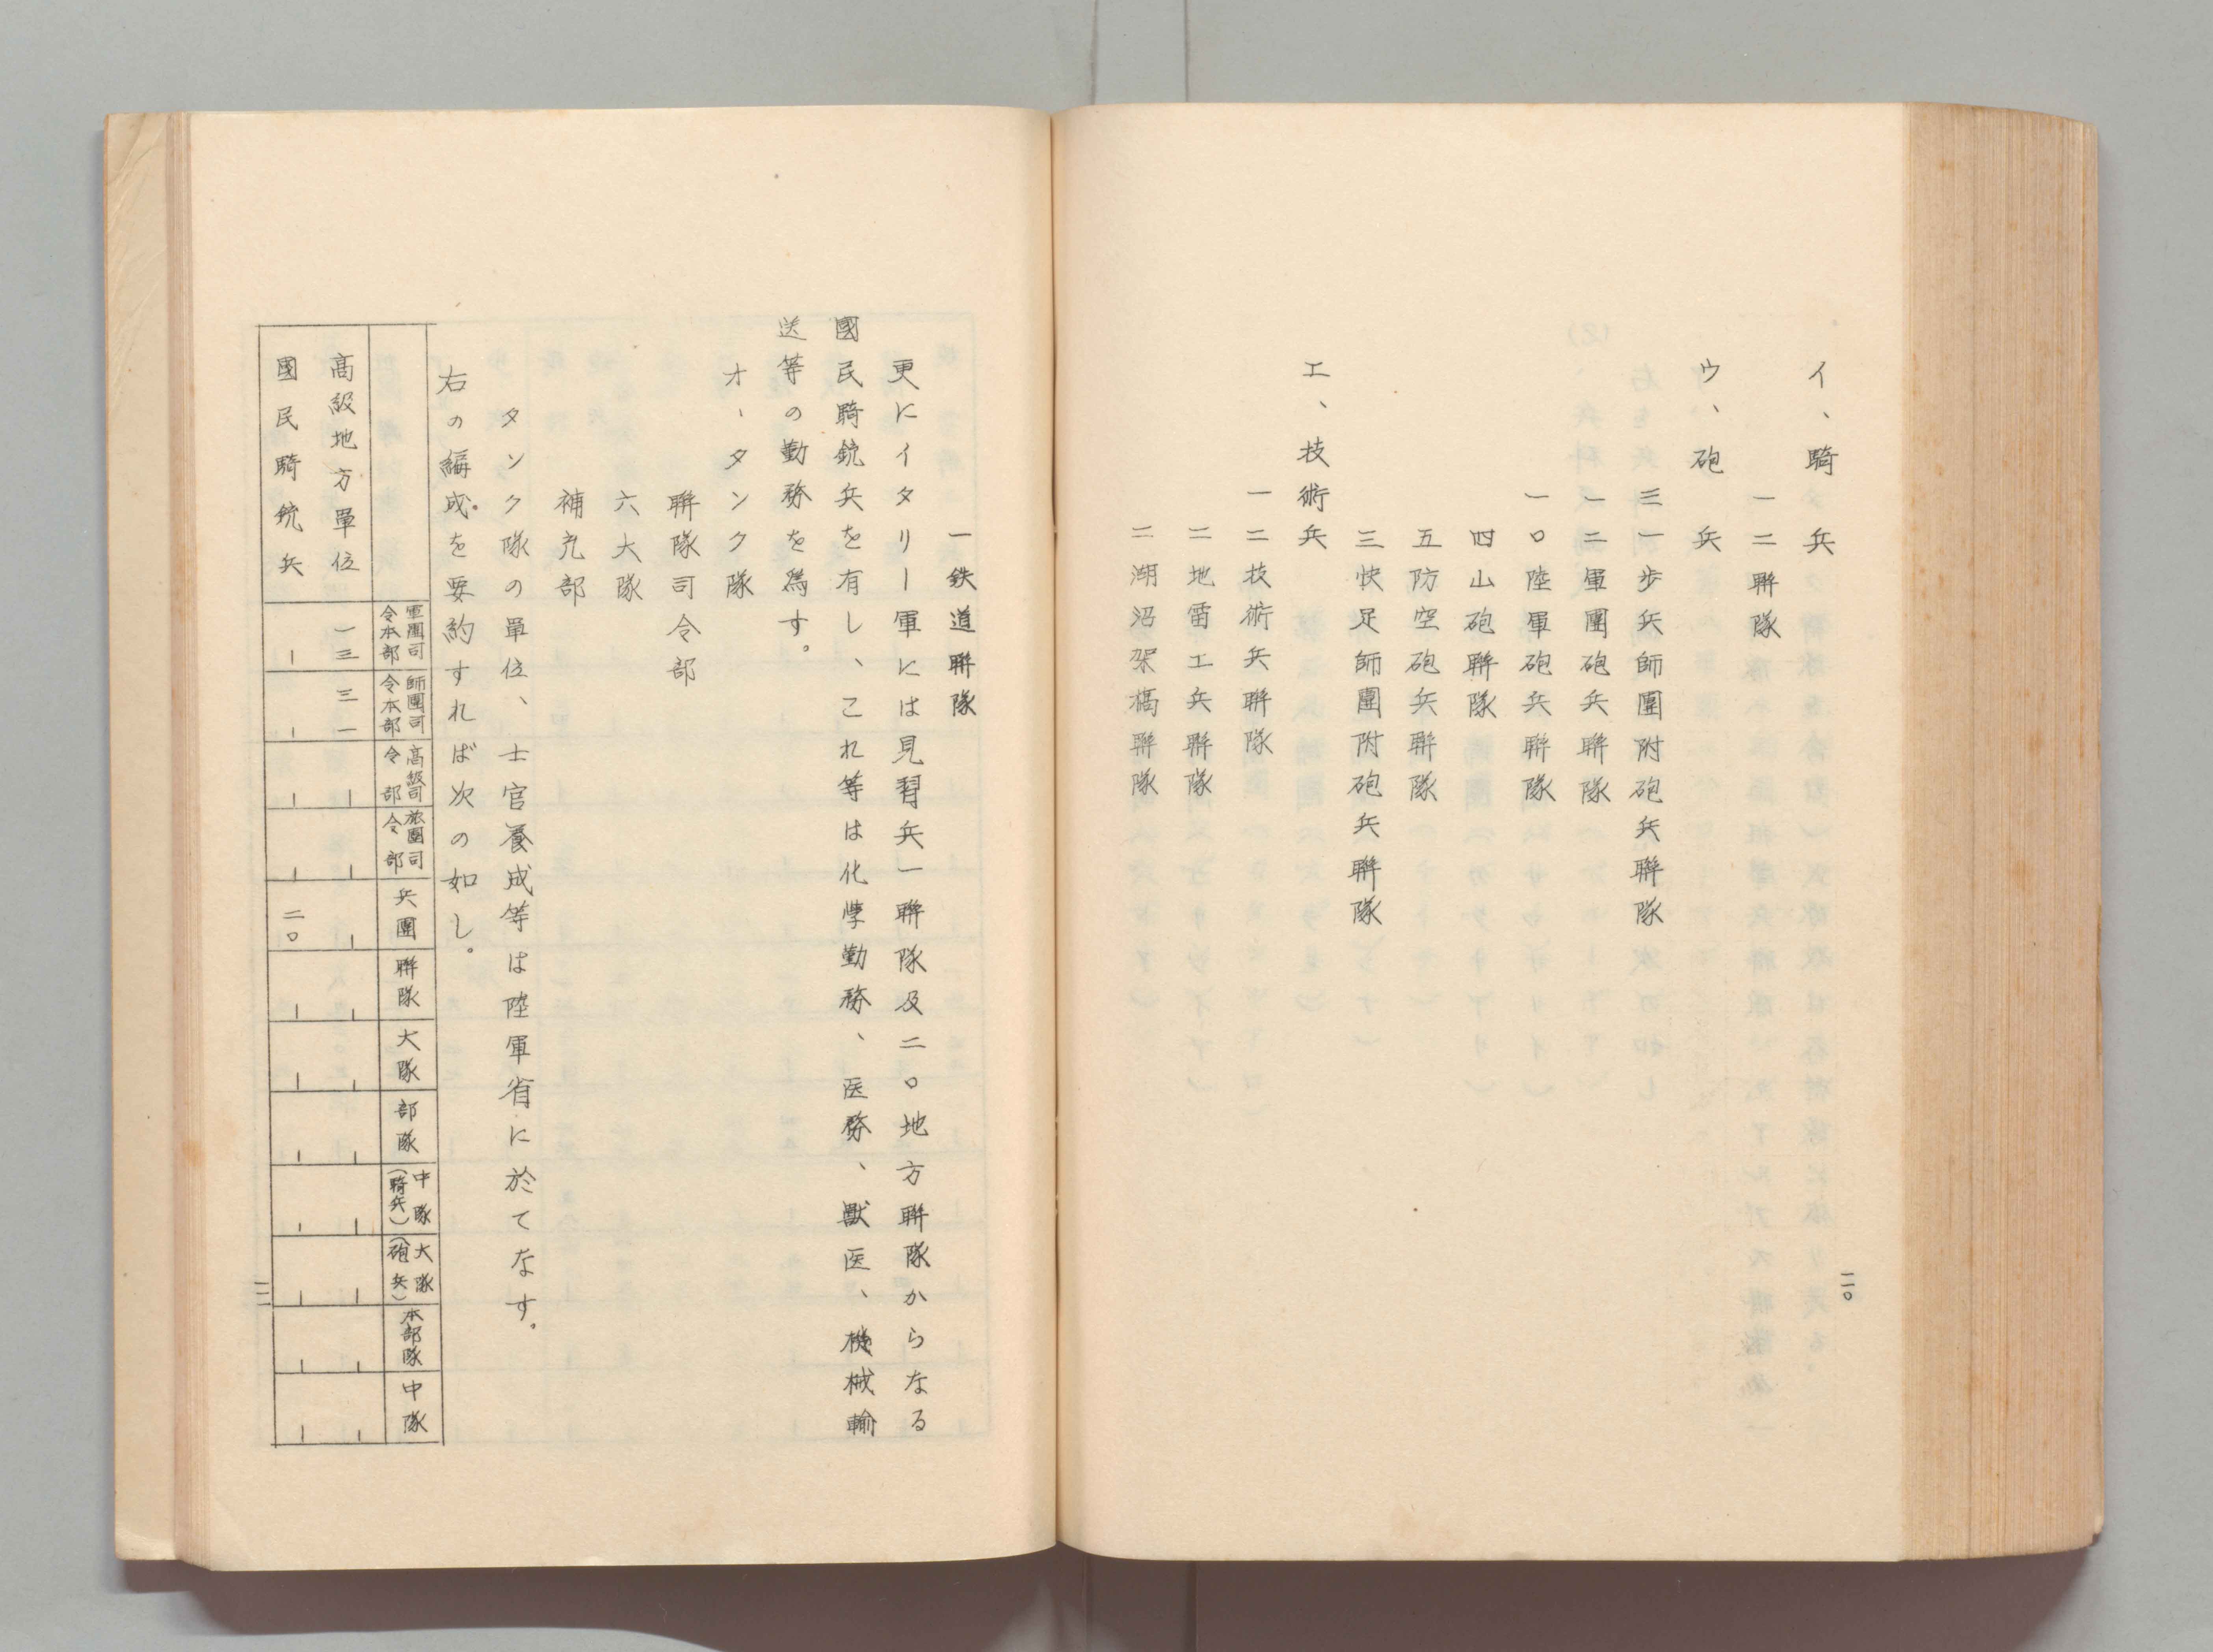 イ、騎兵
一二聯隊
ウ、砲兵
三一歩兵師團附砲兵聯隊
一二軍團砲兵聯隊
一〇陸軍砲兵聯隊
四山砲聯隊
五防空砲兵聯隊
三快足師團附砲兵聯隊
エ、技術兵
一二技術兵聯隊
二地雷工兵聯隊
二湖沼架橋聯隊
二〇
一鉄道聯隊
更にイタリー軍には見習兵一聯隊及二〇地方聯隊からなる
國民騎銃兵を有し、これ等は化學勤務、医務、獸医、機械輸
送等の勤務を為す。
オ、タンク隊
聯隊司令部
六大隊
補充部
タンク隊の單位、士官養成等は陸軍省に於てなす。
右の編成を要約すれば次の如し。
軍團司令本部 師團司令本部 高級司令部 旅團司令部 兵團 聯隊 大隊 部隊 中隊(騎兵) 大隊(砲兵) 本部隊 中隊
高級地方單位 一三 三一 ー ー ー ー ー ー ー ー ー ー
國民騎銃兵 ー ー ー ー 二〇 ー ー ー ー ー ー ー
二一